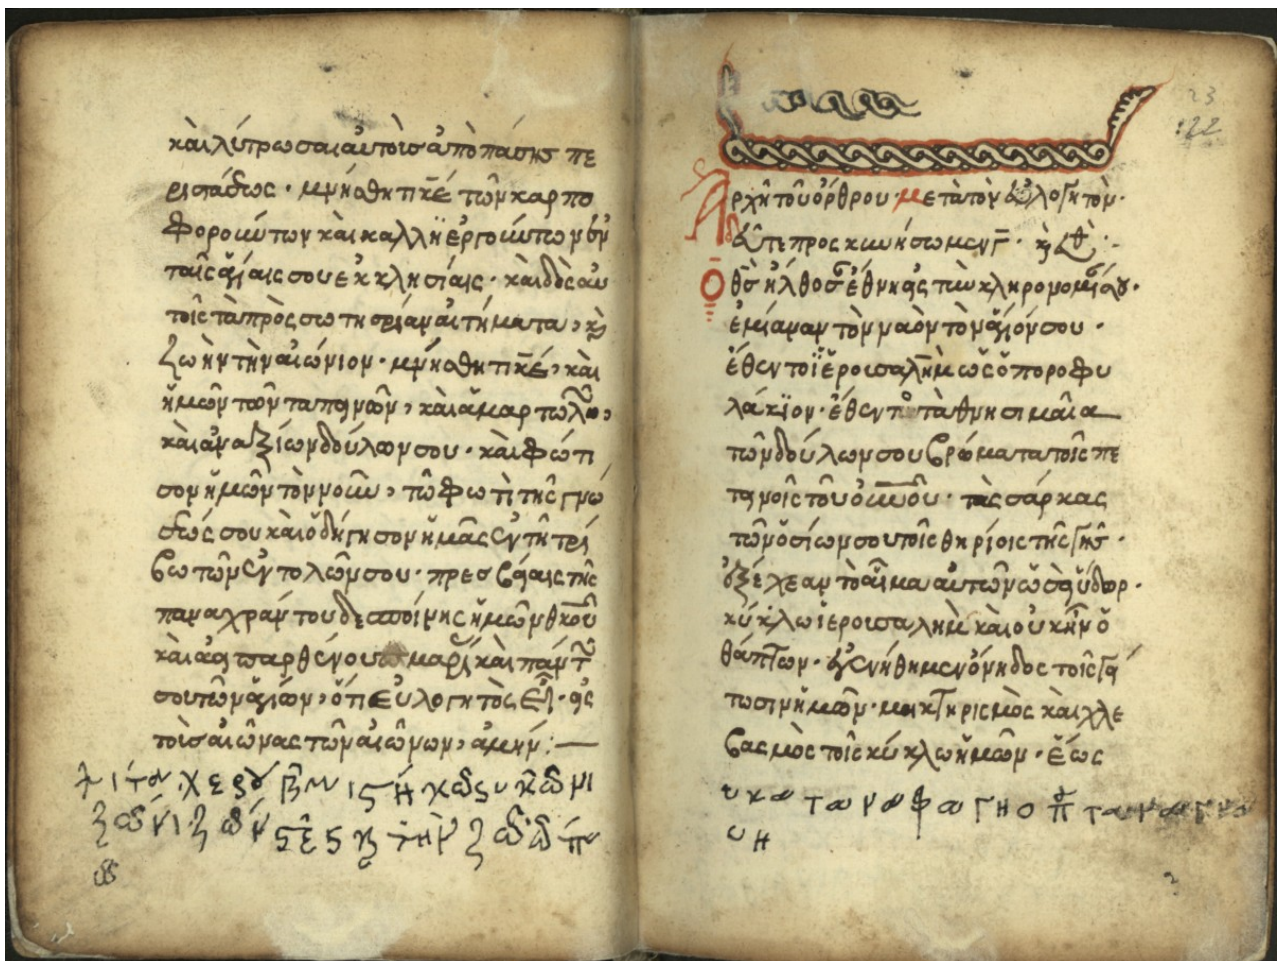 καὶ λύτρωσαι αὐτοὺς ἀπὸ πάσης πε
ριστάσεως · μνήσθητι κε τῶν καρπο
φορούντων καὶ καλλϊεργούντων ἐν
ταῖς ἁγίαις σου ἐκκλησίαις · καὶ δὸς αὐ
τοῖς τὰ πρὸς σωτηρίαν αἰτήματα, κ
ζωὴν τὴν αἰώνιον · μνήσθητι κε, καὶ
ἡμῶν τῶν ταπεινῶν, καὶ ἁμαρτωλῶ,
καὶ ἀναξίων δούλων σου · καὶ φώτι
σον ἡμῶν τὸν νοῦν, τῶ φωτὶ τῆς γνώ
σεώς σου καὶ ὁδήγησον ἡμᾶς ἐν τῆ τρί
βω τῶν ἐντολῶν σου · πρεσβείαις τῆς
παναχράντου δεσποίνης ἡμῶν θκου
καὶ ἀει παρθένου μαρί καὶ πάντ
σου τῶν ἁγίων, ὅτι εὐλογητὸς εἶ · εἰς
τοὺς αἰῶνας τῶν αἰώνων, ἀμήν :
23
22
Αρχὴ τοῦ ὄρθρου · μετὰ τὸν εὐλογητὸν ·
δεῦτε προσκυνήσωμεν γ ·
Ὁ θς ἤλθοσαν ἔθνη εἰς τὴν κληρονομίαν σου ·
ἐμίαναν τὸν ναὸν τὸν ἅγιόν σου ·
ἔθεντο ϊερουσαλὴμ ὡς ὀπωροφυ
λάκϊον · ἔθεντο τὰ θνησιμαῖα
τῶν δούλων σου βρώματα τοῖς πε
τεινοῖς τοῦ οὐνοῦ · τὰς σάρκας
τῶν ὁσίων σου τοῖς θηρίοις τῆς γῆς ·
ἐξέχεαν τὸ αἷμα αὐτῶν ὡσεὶ ὕδωρ ·
κύκλω ἱερουσαλὴμ καὶ οὐκ ἦν ὁ
θάπτων · ἐγενήθημεν ὄνηδος τοῖς γεί
τωσιν ἡμῶν · μυκτηρισμὸς καὶ χλε
βασμὸς τοῖς κύκλω ἡμῶν · ἕως